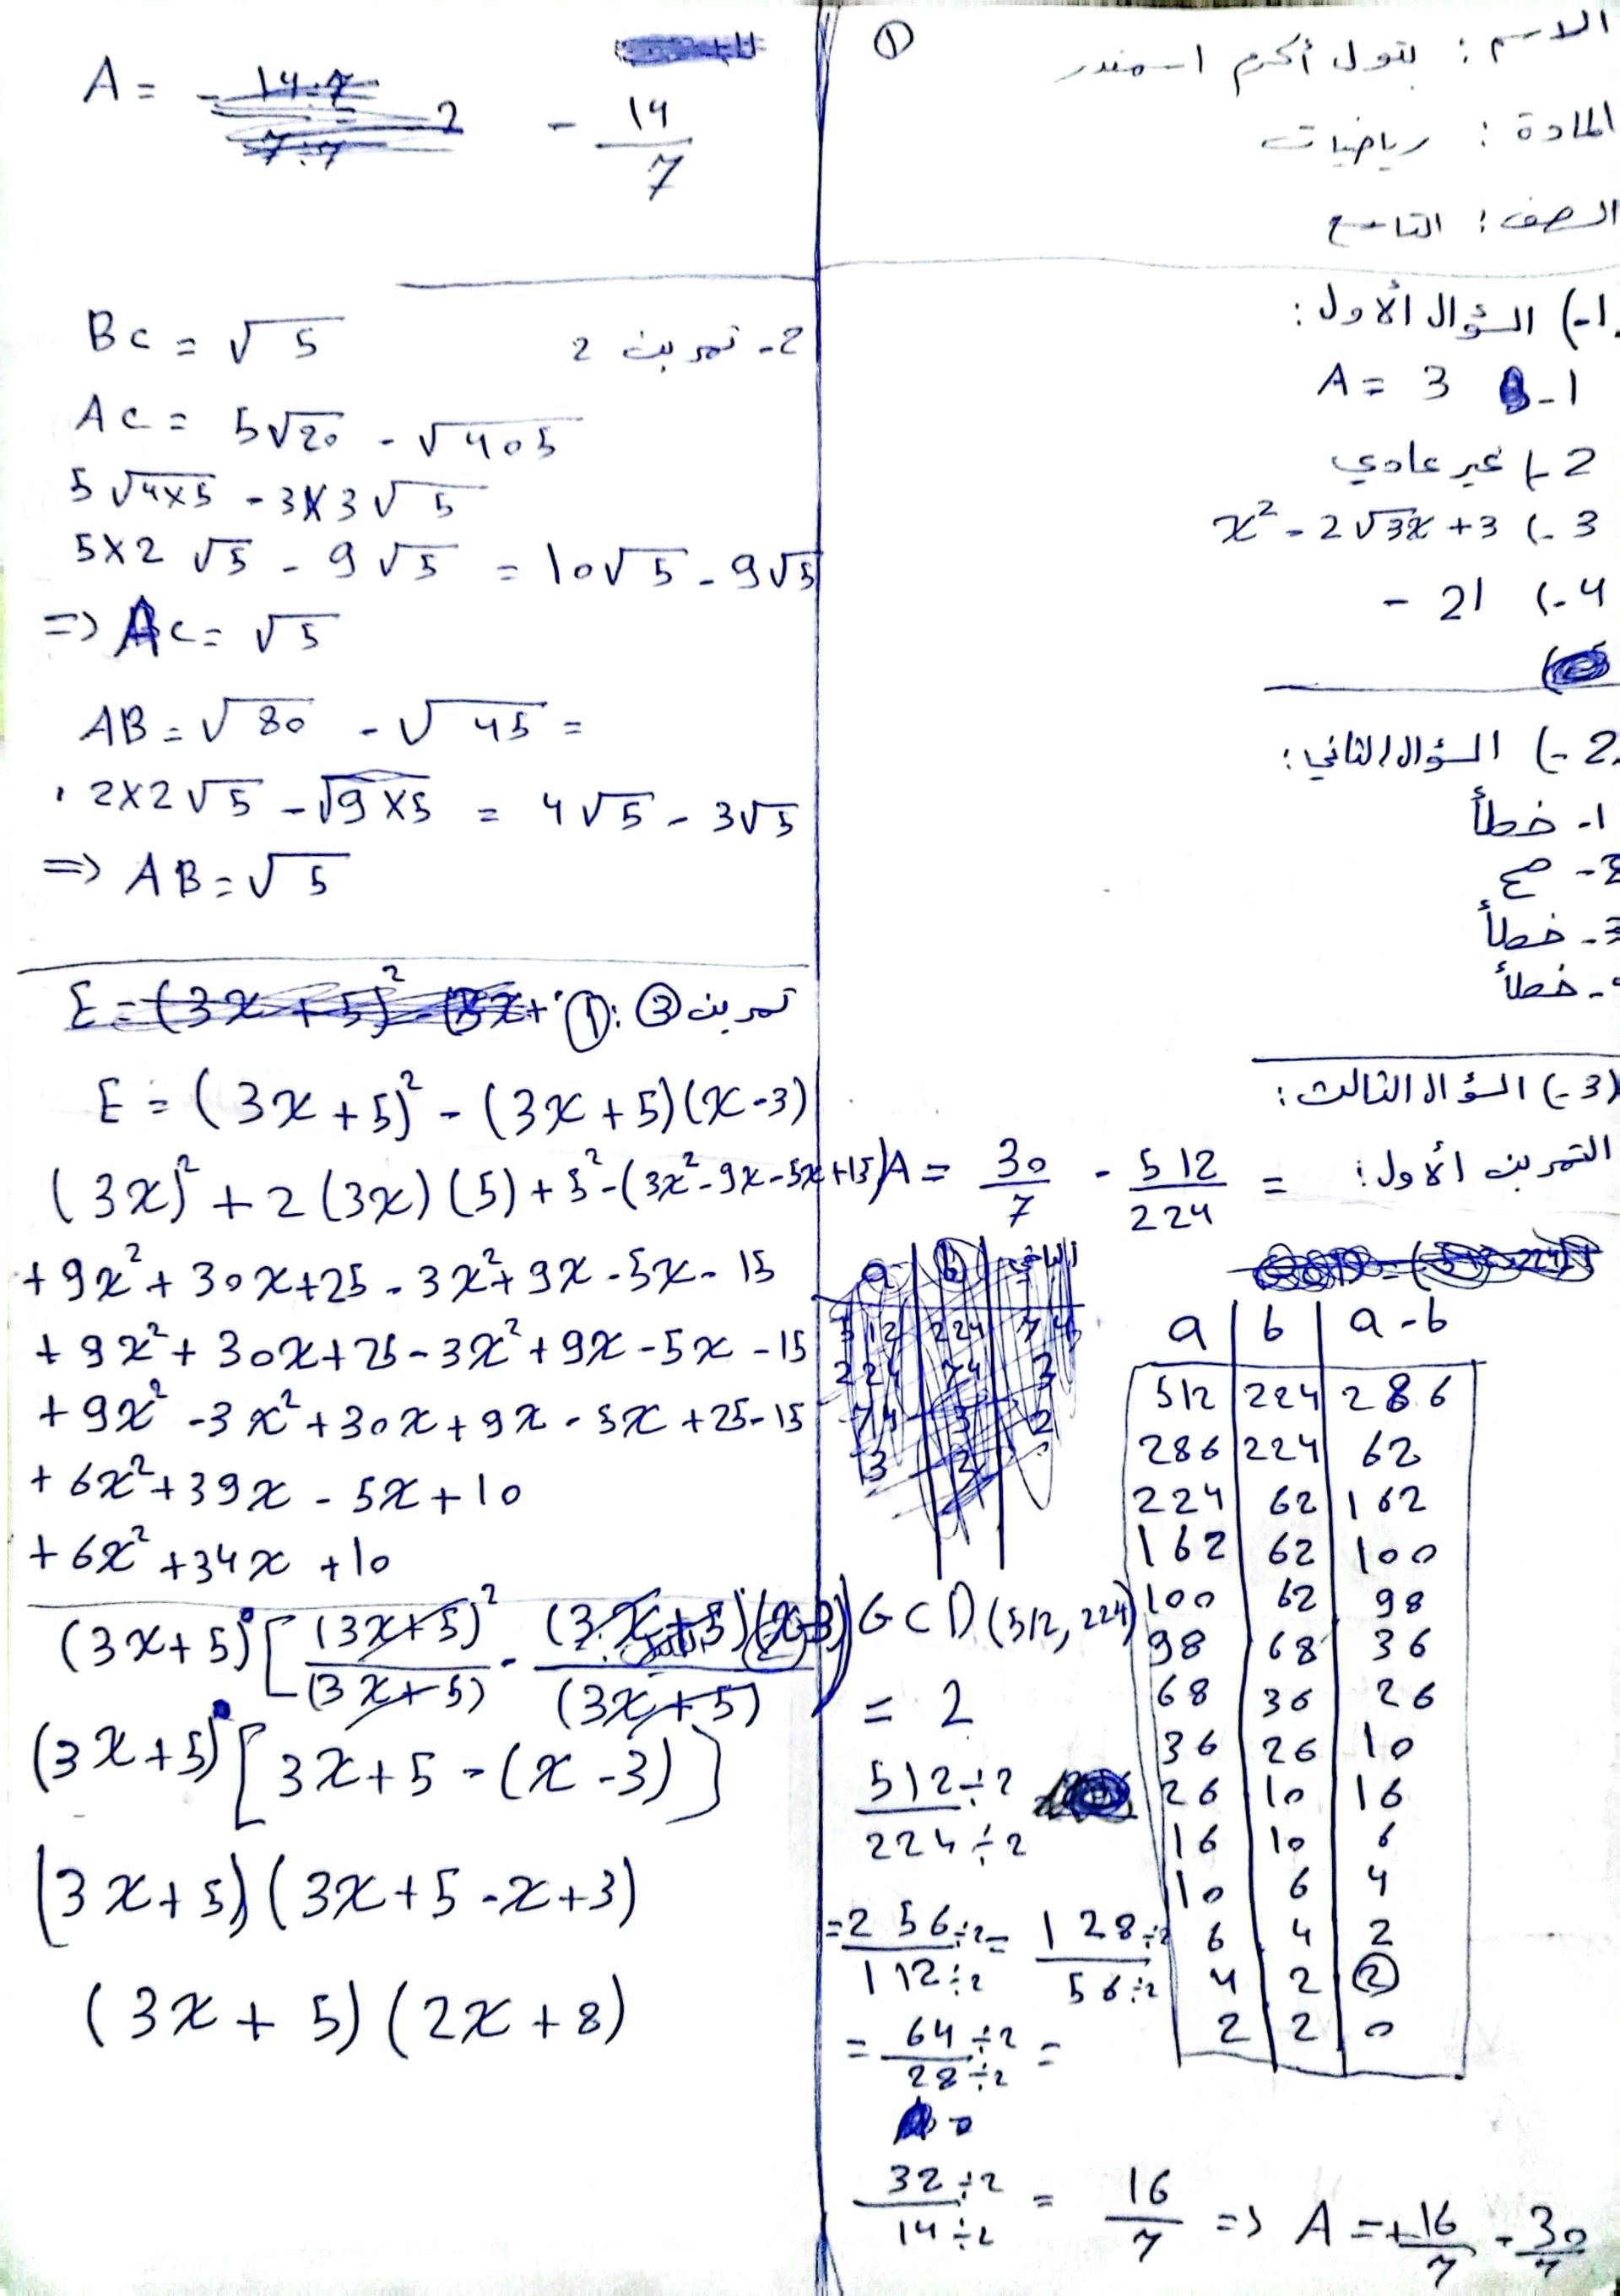 ①
الاسم : بتول أكرم اسمندر
المادة : رياضيات
الصف : التاسع
1-) السؤال الأول :
1- A = 3
2-) غير عادي
3-) x² - 2√3x + 3
4-) - 21
2-) السؤال الثاني :
1- خطأ
2- صح
3- خطأ
- خطأ
3-) السؤال الثالث :
التمرين الأول :
A = 30/7 - 512/224 =
a | b | a - b
512 | 224 | 286
286 | 224 | 62
224 | 62 | 162
162 | 62 | 100
100 | 62 | 98
98 | 68 | 36
68 | 36 | 26
36 | 26 | 10
26 | 10 | 16
16 | 10 | 6
10 | 6 | 4
6 | 4 | 2
4 | 2 | 2
2 | 2 | 0
GCD (512, 224)
= 2
512÷2 / 224÷2
= 256÷2 / 112÷2 = 128÷2 / 56÷2
= 64÷2 / 28÷2 =
32÷2 / 14÷2 = 16/7 => A = +16/7 - 30/7
A = - 14/7
2- تمرين 2
BC = √5
AC = 5√20 - √405
5√4×5 - 3×3√5
5×2√5 - 9√5 = 10√5 - 9√5
=> AC = √5
AB = √80 - √45 =
2×2√5 - √9×5 = 4√5 - 3√5
=> AB = √5
تمرين ③ : ①
E = (3x + 5)² - (3x + 5)(x - 3)
(3x)² + 2(3x)(5) + 5² - (3x² - 9x - 5x + 15)
+ 9x² + 30x + 25 - 3x² + 9x - 5x - 15
+ 9x² + 30x + 25 - 3x² + 9x - 5x - 15
+ 9x² - 3x² + 30x + 9x - 5x + 25 - 15
+ 6x² + 39x - 5x + 10
+ 6x² + 34x + 10
(3x + 5) [ (3x + 5)² / (3x + 5) - (3x + 5)(x - 3) / (3x + 5)
(3x + 5) [ 3x + 5 - (x - 3) ]
(3x + 5)(3x + 5 - x + 3)
(3x + 5)(2x + 8)